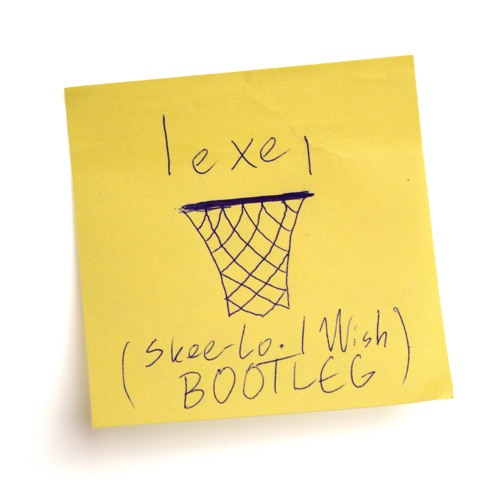 lexel
(Skee-Lo. I Wish)
BOOTLEG